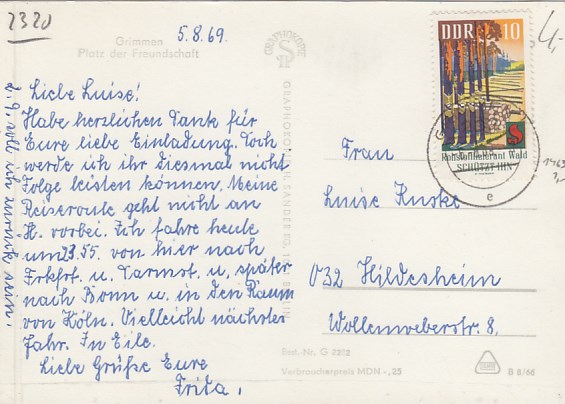 2320
5.8.69.
Grimmen
Platz der Freundschaft
Liebe Luise!
Habe herzlichen Dank für
Eure liebe Einladung. Doch
werde ich ihr diesmal nicht
Folge leisten können. Meine
Reiseroute geht nicht an
H. vorbei. Ich fahre heute
um 23.55. von hier nach
Frkfrt. u. Darmst. u. später
nach Bonn u. in den Raum
von Köln. Vielleicht nächstes
Jahr. In Eile.
Liebe Grüße Eure
Frida.
d. 9. will ich zurück sein.
GRAPHOKOPIE
DDR 10
Rohstofflieferant Wald
SCHÜTZT IHN
e
Frau
Luise Kuske
032 Hildesheim
Wollenweberstr. 8.
Best.-Nr. G 2292
Verbraucherpreis MDN -,25
B 8/66